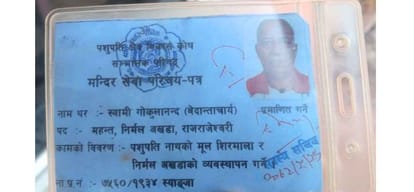 पशुपति क्षेत्र विकास कोष
सञ्चालक परिषद्
मन्दिर सेवा परिचय-पत्र
नाम थर : स्वामी गोकुमानन्द (वेदान्ताचार्य)
प्रमाणित गर्ने
पद : महन्त, निर्मल अखडा, राजराजेश्वरी
कामको विवरण : पशुपति नाथको मूल शिरमाला र
निर्मल अखडाको व्यवस्थापन गर्ने
सदस्य सचिव
ना.प्र.नं : ७५६०/१९३४ स्याङ्जा